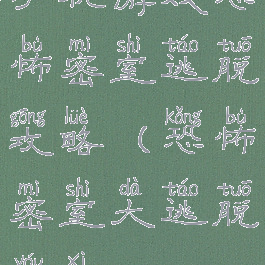 bù mì shì táo tuō
怖密室逃脱
gōng lüè kǒng bù
攻略（恐怖
mì shì dà táo tuō
密室大逃脱
yóu xì